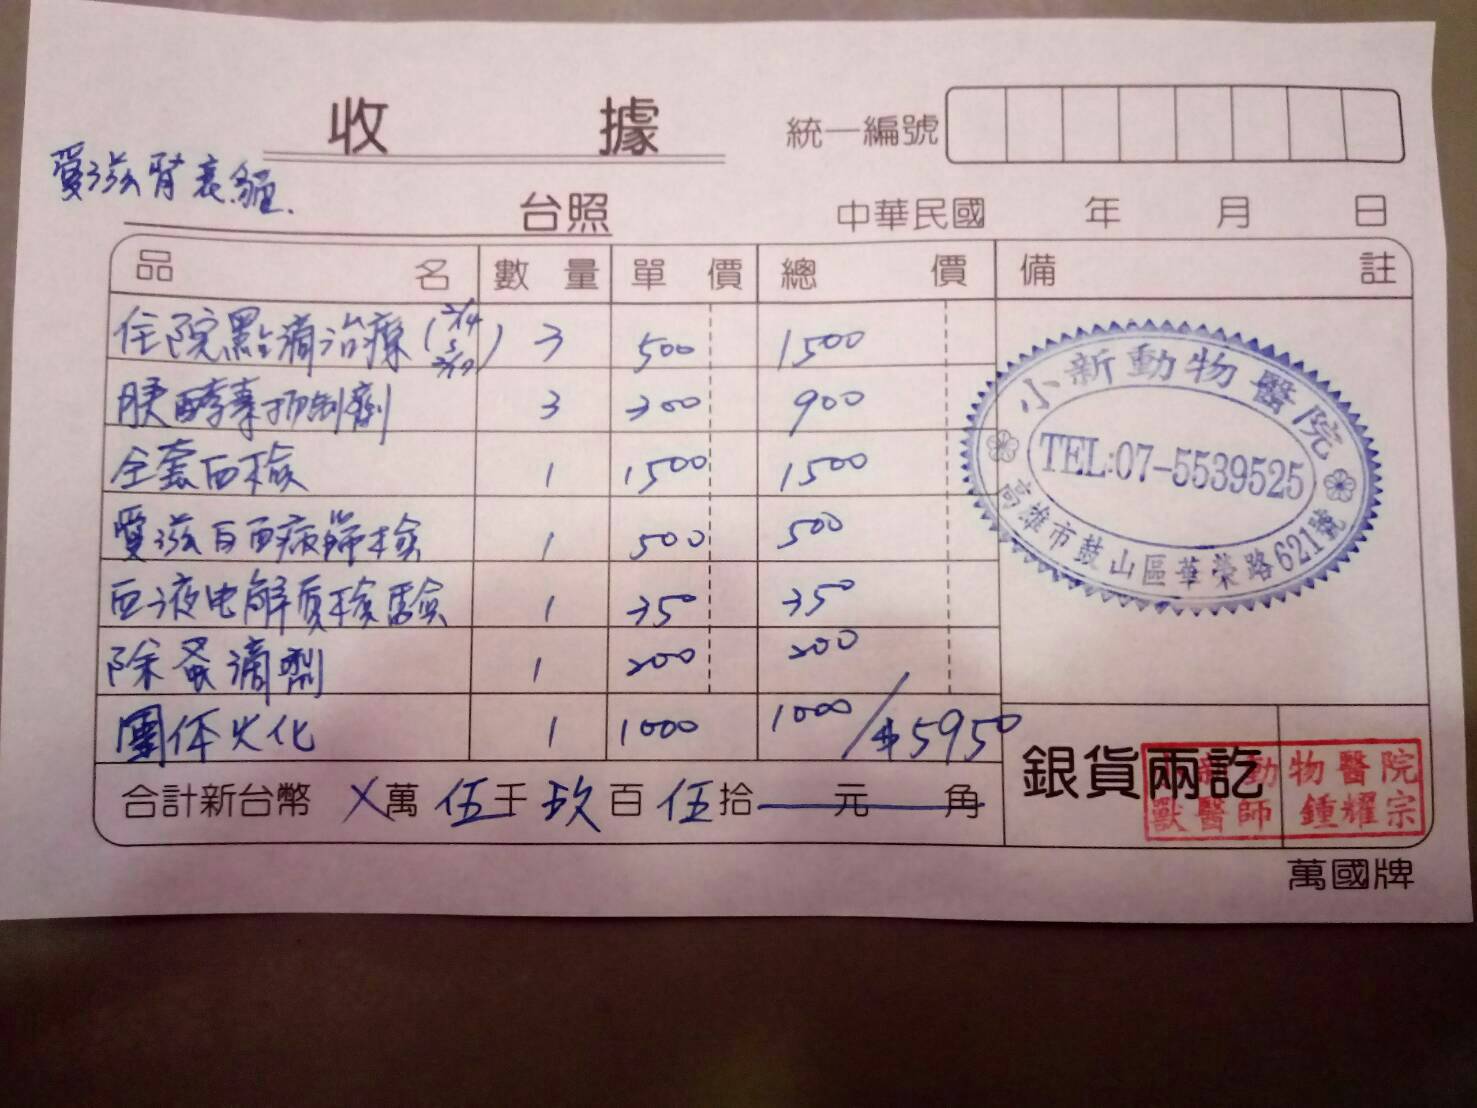 收據
統一編號
愛滋腎衰貓.
台照
中華民國 年 月 日
品名 數量 單價 總價 備註
住院點滴治療(2/14 3 500 1500
2/17)
胰酵素抑制劑 3 300 900
全套血檢 1 1500 1500
愛滋白血病篩檢 1 500 500
血液电解質檢驗 1 350 350
除蚤滴劑 1 200 200
團体火化 1 1000 1000 /$5950
合計新台幣 X萬 伍千 玖百 伍拾 元 角
小新動物醫院
TEL:07-5539525
高雄市鼓山區華榮路621號
銀貨兩訖
小新動物醫院
獸醫師 鍾耀宗
萬國牌